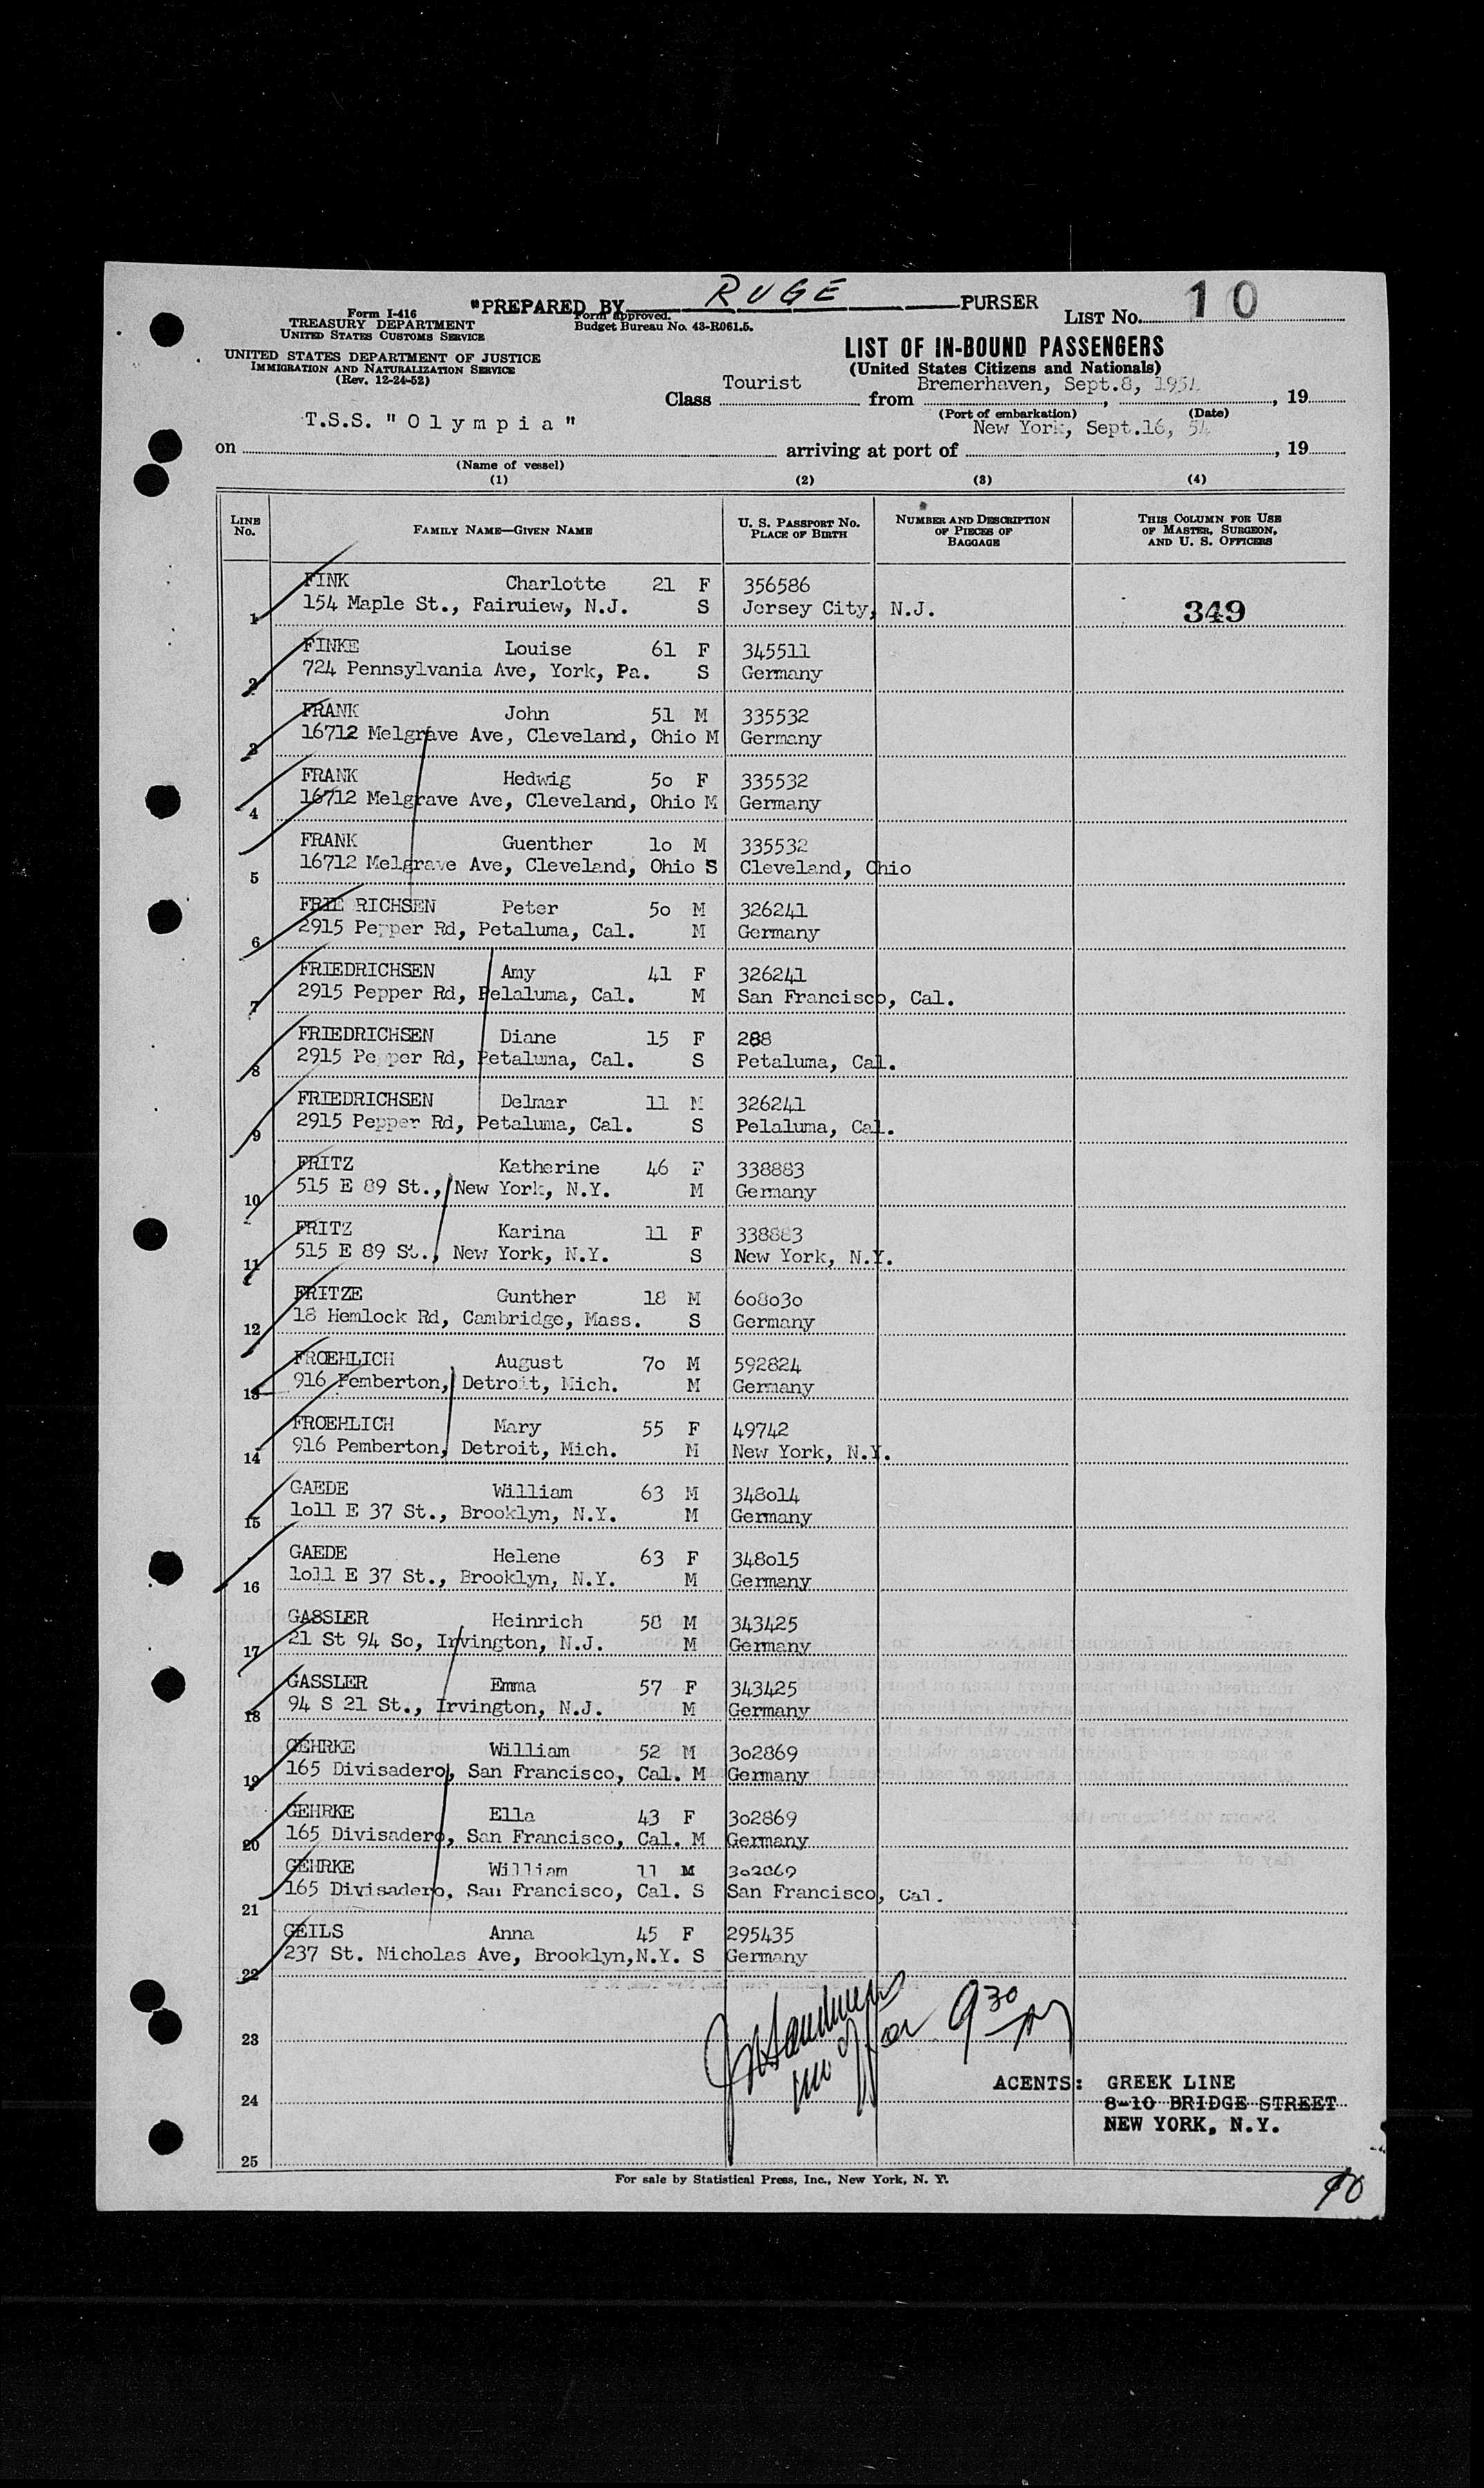 "PREPARED BY RUGE PURSER
Form I-416
TREASURY DEPARTMENT
UNITED STATES CUSTOMS SERVICE
Form approved.
Budget Bureau No. 43-R061.5.
LIST No. 10
UNITED STATES DEPARTMENT OF JUSTICE
IMMIGRATION AND NATURALIZATION SERVICE
(Rev. 12-24-52)
LIST OF IN-BOUND PASSENGERS
(United States Citizens and Nationals)
Class Tourist from Bremerhaven, Sept.8, 1954, 19
(Port of embarkation) (Date)
on T.S.S. "Olympia" arriving at port of New York, Sept.16, 54, 19
(Name of vessel)
(1) (2) (3) (4)
LINE No. FAMILY NAME—GIVEN NAME U. S. PASSPORT No. PLACE OF BIRTH NUMBER AND DESCRIPTION OF PIECES OF BAGGAGE THIS COLUMN FOR USE OF MASTER, SURGEON, AND U. S. OFFICERS
FINK Charlotte 21 F 356586
1 154 Maple St., Fairuiew, N.J. S Jersey City, N.J. 349
FINKE Louise 61 F 345511
2 724 Pennsylvania Ave, York, Pa. S Germany
FRANK John 51 M 335532
3 16712 Melgrave Ave, Cleveland, Ohio M Germany
FRANK Hedwig 50 F 335532
4 16712 Melgrave Ave, Cleveland, Ohio M Germany
FRANK Guenther 10 M 335532
5 16712 Melgrave Ave, Cleveland, Ohio S Cleveland, Ohio
FRIE RICHSEN Peter 50 M 326241
6 2915 Pepper Rd, Petaluma, Cal. M Germany
FRIEDRICHSEN Amy 41 F 326241
7 2915 Pepper Rd, Pelaluma, Cal. M San Francisco, Cal.
FRIEDRICHSEN Diane 15 F 288
8 2915 Pepper Rd, Petaluma, Cal. S Petaluma, Cal.
FRIEDRICHSEN Delmar 11 M 326241
9 2915 Pepper Rd, Petaluma, Cal. S Pelaluma, Cal.
FRITZ Katherine 46 F 338883
10 515 E 89 St., New York, N.Y. M Germany
FRITZ Karina 11 F 338883
11 515 E 89 St., New York, N.Y. S New York, N.Y.
FRITZE Gunther 18 M 608030
12 18 Hemlock Rd, Cambridge, Mass. S Germany
FROEHLICH August 70 M 592824
13 916 Pemberton, Detroit, Mich. M Germany
FROEHLICH Mary 55 F 49742
14 916 Pemberton, Detroit, Mich. M New York, N.Y.
GAEDE William 63 M 348014
15 1011 E 37 St., Brooklyn, N.Y. M Germany
GAEDE Helene 63 F 348015
16 1011 E 37 St., Brooklyn, N.Y. M Germany
GASSLER Heinrich 58 M 343425
17 21 St 94 So, Irvington, N.J. M Germany
GASSLER Emma 57 F 343425
18 94 S 21 St., Irvington, N.J. M Germany
GEHRKE William 52 M 302869
19 165 Divisadero, San Francisco, Cal. M Germany
GEHRKE Ella 43 F 302869
20 165 Divisadero, San Francisco, Cal. M Germany
GEHRKE William 11 M 302869
21 165 Divisadero, San Francisco, Cal. S San Francisco, Cal.
GEILS Anna 45 F 295435
22 237 St. Nicholas Ave, Brooklyn, N.Y. S Germany
23 9 30
AGENTS: GREEK LINE
24 8-10 BRIDGE STREET
NEW YORK, N.Y.
25
For sale by Statistical Press, Inc., New York, N. Y.
10